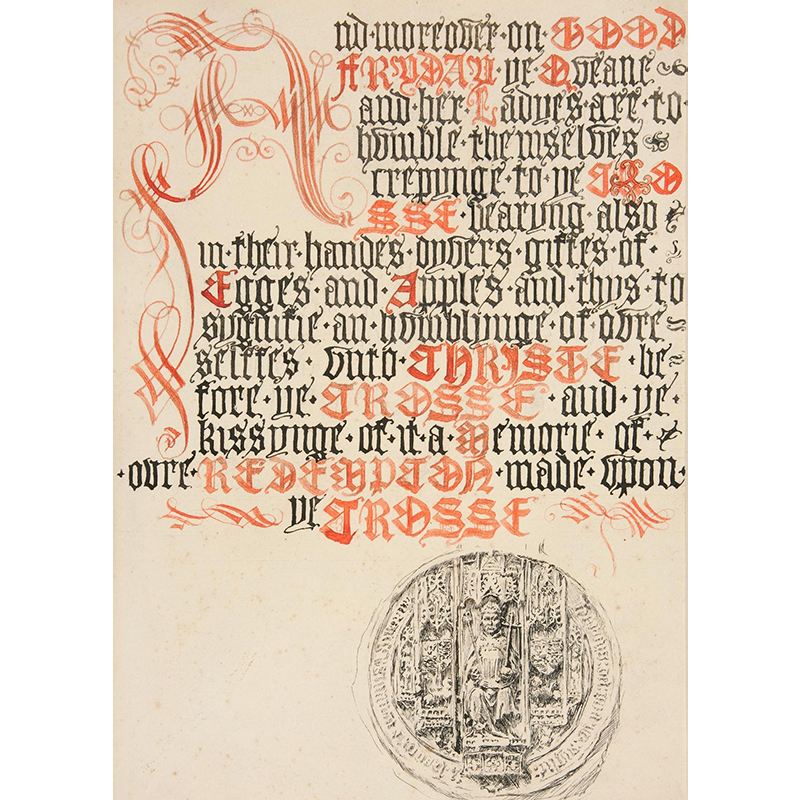 And·moreover·on·GOOD
FRYDAY·ye·Qveane
and·her·Ladyes·are·to·
hvmble·themselves
crepynge·to·ye CRO
SSE·bearyng·also
in·their·handes·dyvers·giftes·of·
Egges·and·Apples·and·thvs·to
sygnifie·an·hvmblynge·of·ovre
selffes·vnto·CHRISTE·be
fore·ye·CROSSE·and·ye·
kissynge·of·it·a·Memorie·of·
·ovre·REDEMPTON·made·vpon·
ye CROSSE